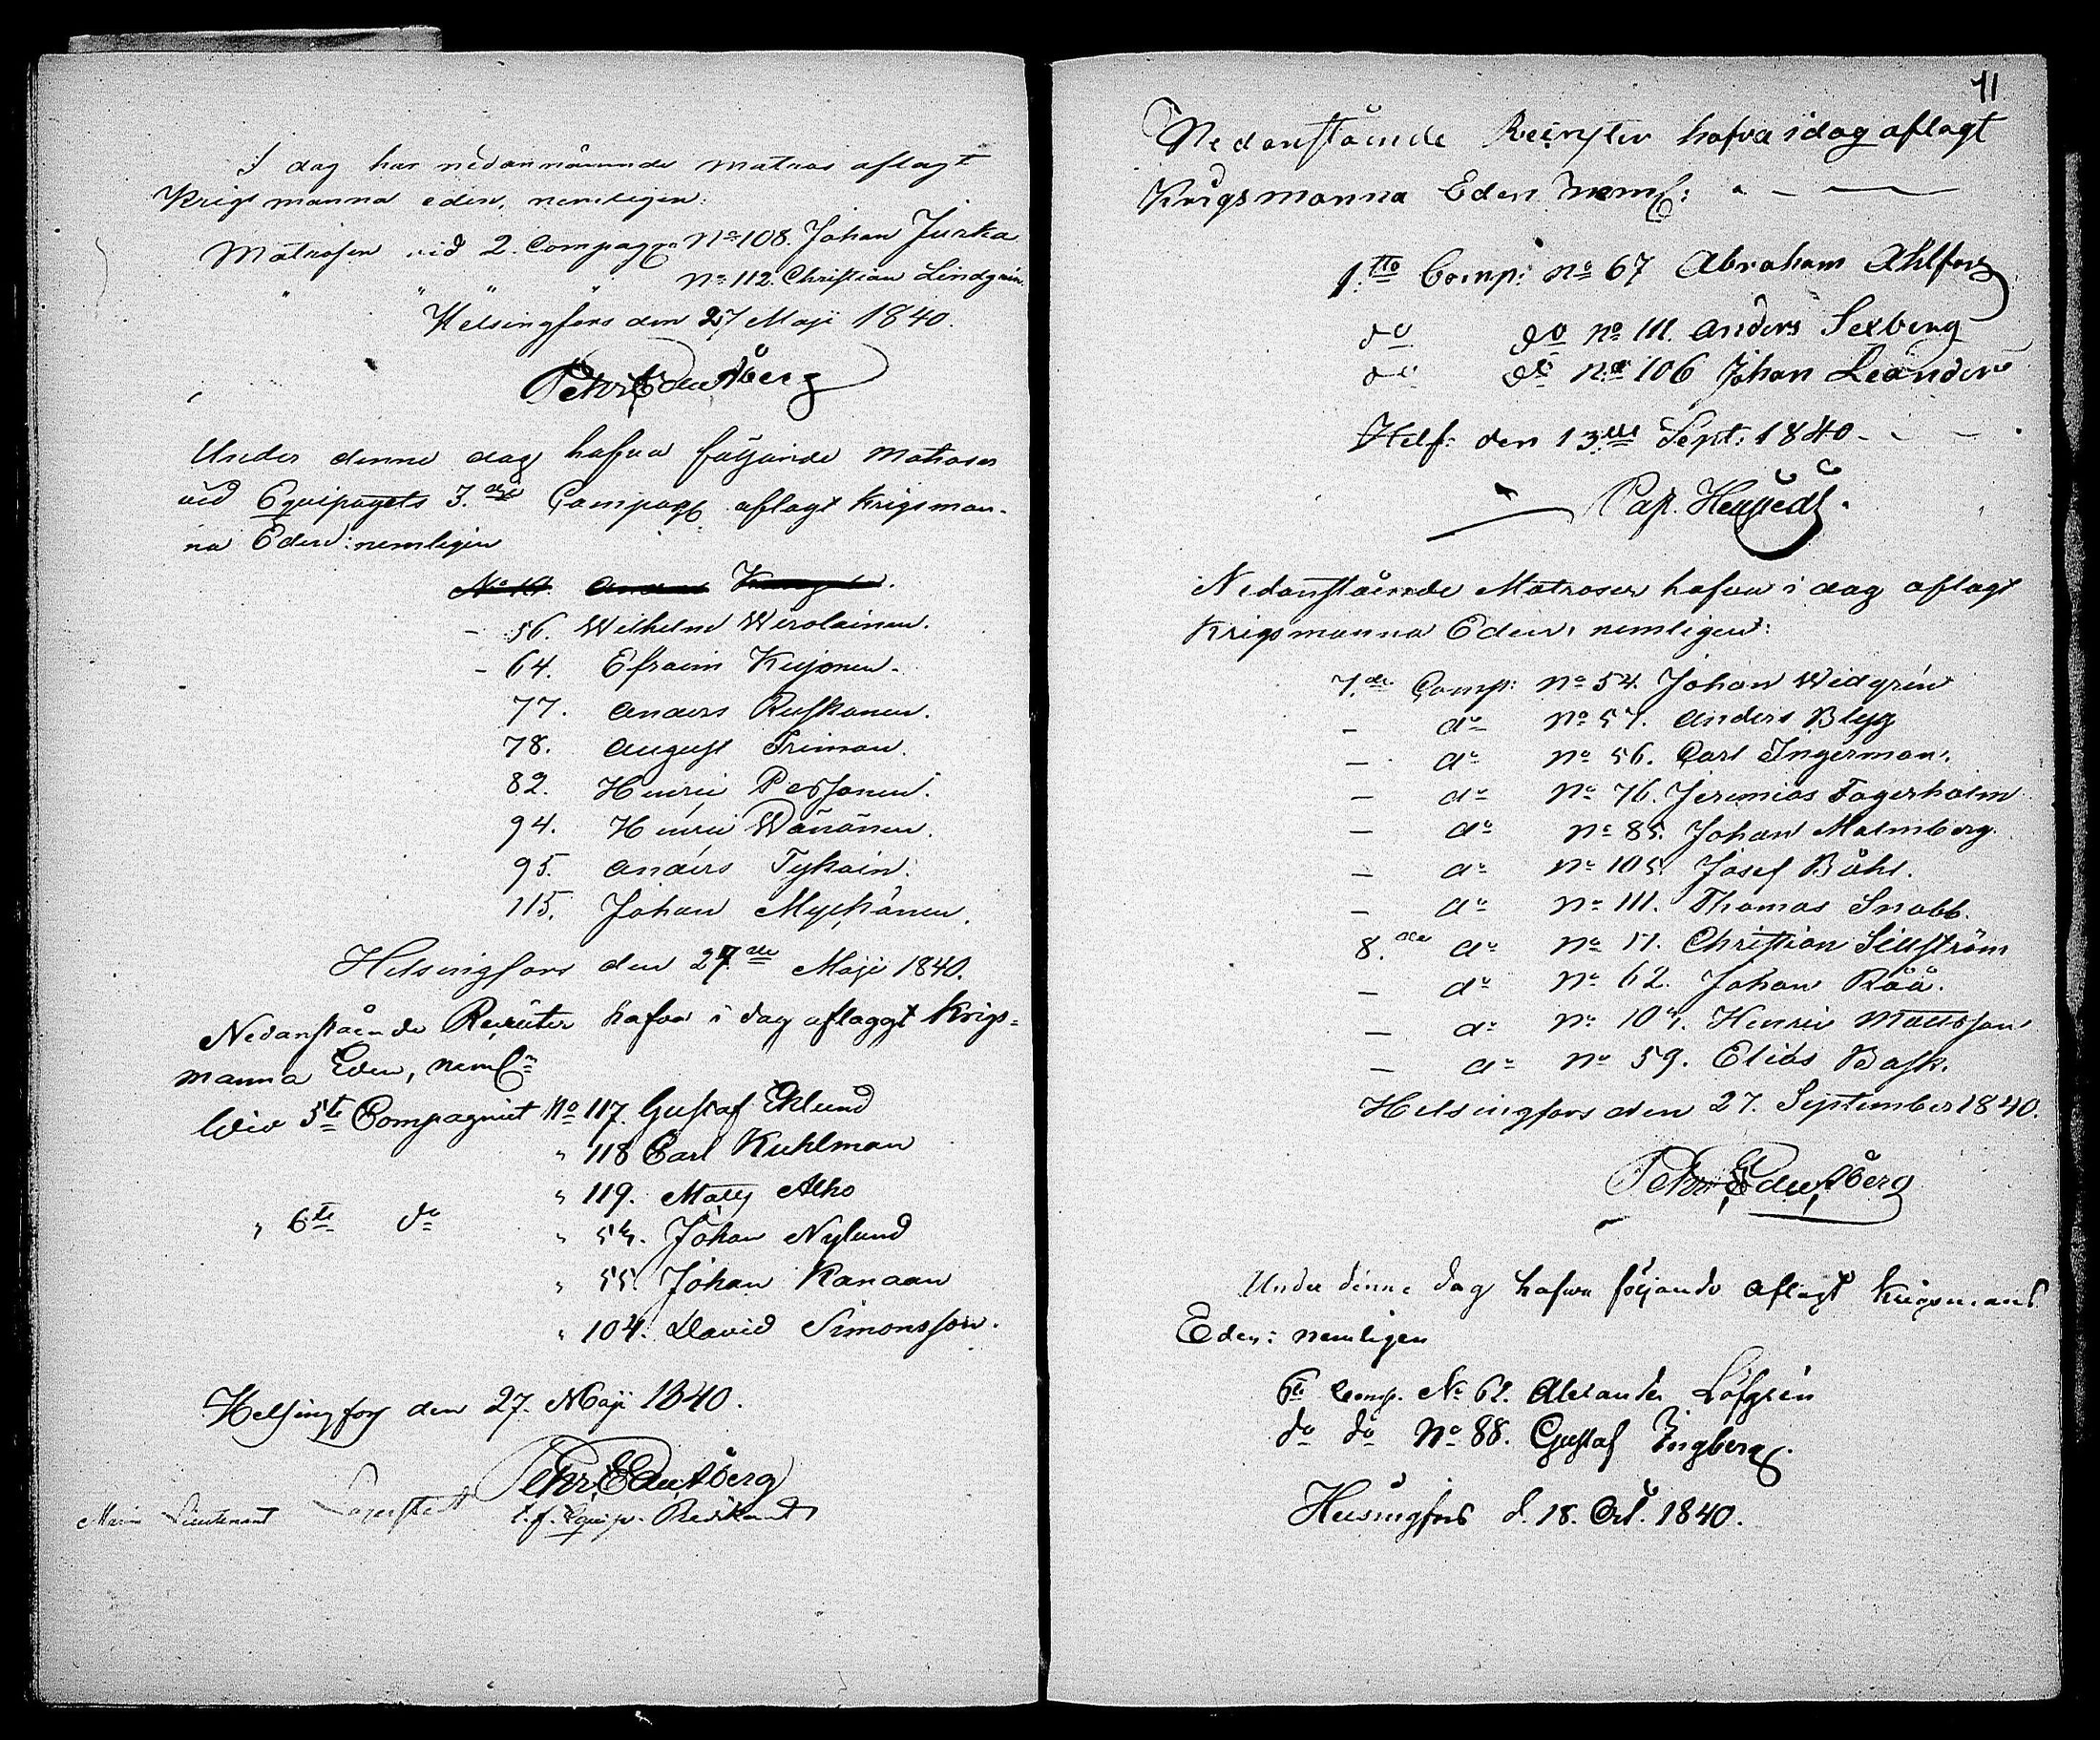 I dag har nedannämnde matros aflagt
Krigsmanna eden, nemligen:
Matrosen vid 2. Compag: No 108. Johan Jurka
" " " " No 112. Christian Lindgrén.
Helsingfors den 27 Maji 1840.
Pehr Edv. Åberg
Under denna dag hafva följande Matroser
vid Equipagets 3.dje Compag: aflagt Krigsman-
na Eden: nemligen
- 56. Wilhelm Werolainen.
- 64. Efraim Kujonen.
77. Anders Ruskonen.
78. August Friman.
82. Henric Pessonen.
94. Henric Wänänen.
95. Anders Tyskain.
115. Johan Myckänen.
Helsingfors den 27de Maji 1840.
Nedanstående Recruter hafva i dag aflaggt Krigs=
manna Eden, neml:n
Wid 5te Compagniet No 117. Gustaf Eklund
" 118 Carl Kuhlman
" 119. Matts Alho
" 6te do " 54. Johan Nylund
" 55. Johan Kanaan
" 104. David Simonsson.
Helsingfors den 27. Maji 1840.
Pehr Edv. Åberg
Marin Lieutenant Lagerstedt t.f. Equip. Predikant
71
Nedanstående Recryter hafva idag aflagt
Krigsmanna Eden neml: - -
1.sta Comp: No 67 Abraham Ahlfors
do do No 111. Anders Sexberg
do do No 106 Johan Leander
Helsf: den 13de Sept: 1840 - - -
Nedanstående Matroser hafva i dag aflagt
Krigsmanna Eden, nemligen:
7.de Comp: No 54. Johan Widgrén
- do No 57. Anders Blyg
- do No 56. Carl Ingerman.
- do No 76. Jeremias Fagerholm
- do No 85. Johan Malmberg.
- do No 105. Josef Båhl.
- do No 111. Thomas Snabb.
8.de do No 51. Christian Sillström
- do No 62. Johan Råå.
- do No 104. Henric Mattsson
- do No 59. Elias Bask.
Helsingfors den 27. September 1840.
Pehr Edv. Åberg
Under denne dag hafva följande aflagt Krigsmans
Eden: nemligen
6te Comp. No 62. Alexander Löfgrén
do do No 88. Gustaf Engberg.
Helsingfors d. 18. Oct. 1840.